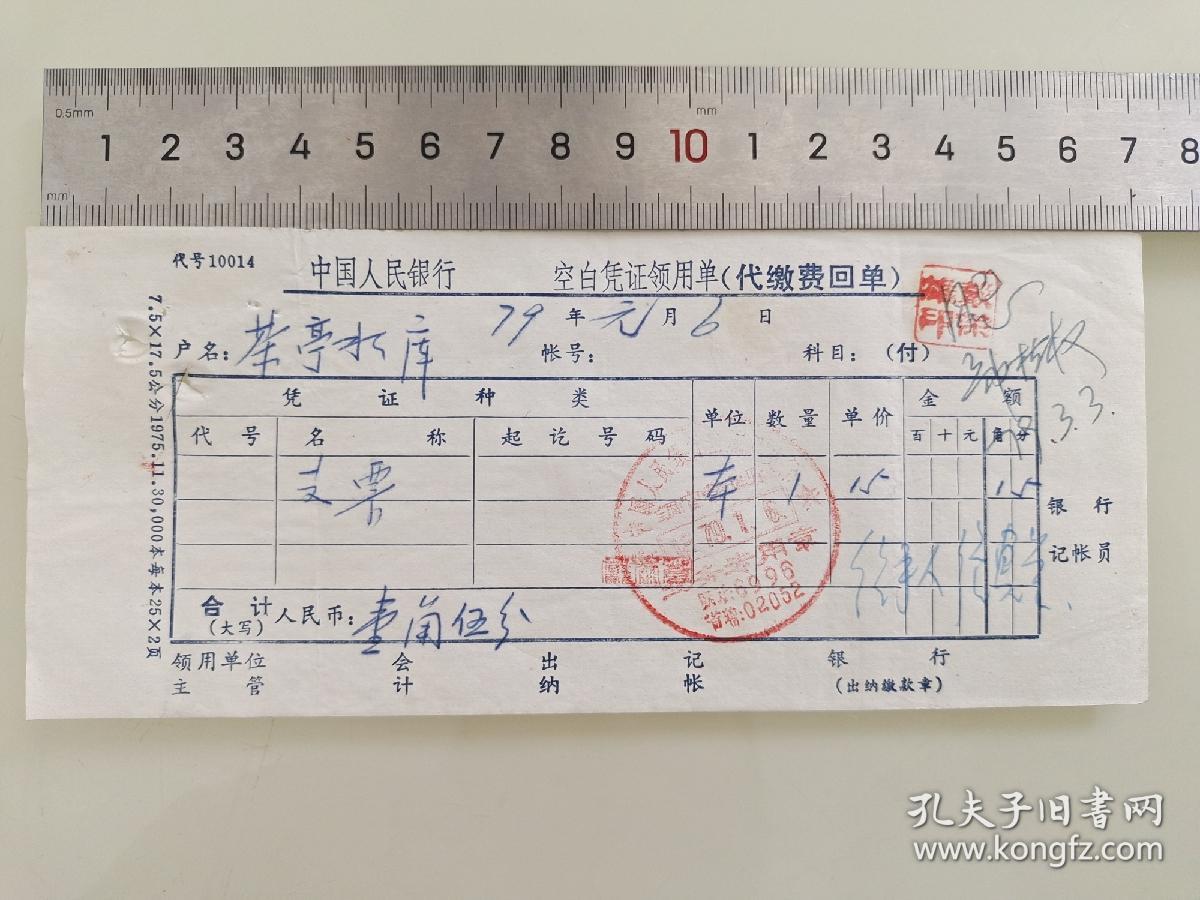 0.5mm
mm
1 2 3 4 5 6 7 8 9 10 1 2 3 4 5 6 7 8
mm
代号10014
中国人民银行 空白凭证领用单(代缴费回单)
79年元月6日
户名:茶亭水库 帐号: 科目:(付)
79.3.3.
7.5×17.5公分1975.11.30,000本每本25×2页
凭证种类 单位 数量 单价 金额
代号 名称 起讫号码 百 十 元 角 分
支票 本 1 .15 15
79.1.6
6996
02052
银行
记帐员
合计
(大写)
人民币:壹角伍分
领用单位 会 出 记 银行
主管 计 纳 帐 (出纳缴款章)
孔夫子旧书网
www.kongfz.com